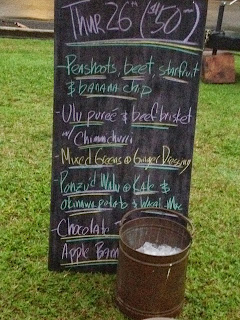 Thur 26th ($50-)
- Peashoots, beef, starfruit
& banana chip
- Ulu pureé & beef brisket
w/ Chimmchurri
- Mixed Greens @ Ginger Dressing
- Ponzu'd Walu @ Kale &
Okinawa potato &
- Chocolate
Apple Banana